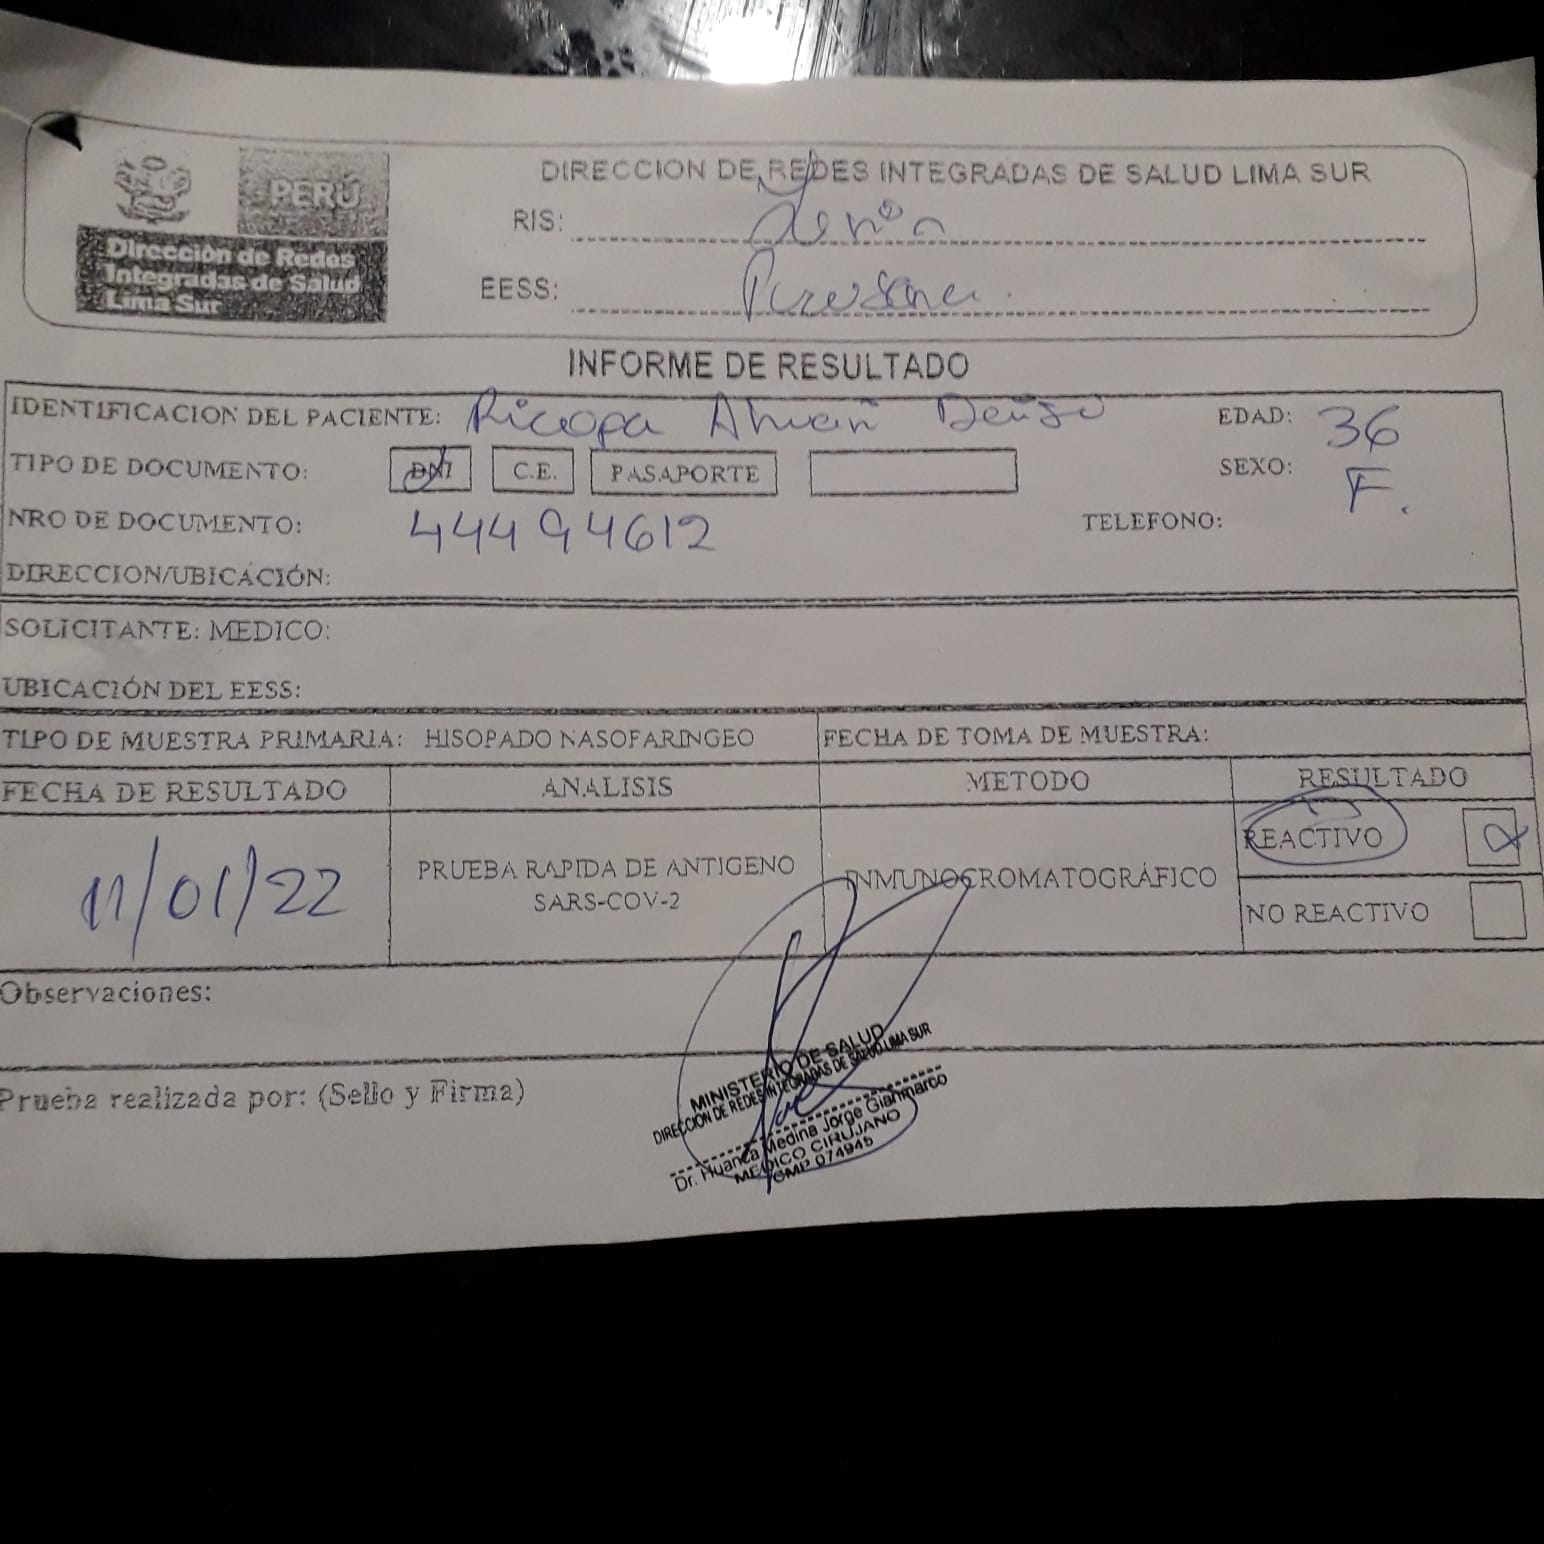 PERÚ
Dirección de Redes
Integradas de Salud
Lima Sur
DIRECCION DE REDES INTEGRADAS DE SALUD LIMA SUR
RIS:
EESS:
INFORME DE RESULTADO
IDENTIFICACION DEL PACIENTE: Ricopa
EDAD: 36
TIPO DE DOCUMENTO: DNI C.E. PASAPORTE
SEXO: F.
NRO DE DOCUMENTO: 44494612
TELEFONO:
DIRECCION/UBICACIÓN:
SOLICITANTE: MEDICO:
UBICACIÓN DEL EESS:
TIPO DE MUESTRA PRIMARIA: HISOPADO NASOFARINGEO
FECHA DE TOMA DE MUESTRA:
FECHA DE RESULTADO ANALISIS METODO RESULTADO
11/01/22
PRUEBA RAPIDA DE ANTIGENO
SARS-COV-2
INMUNOCROMATOGRÁFICO
REACTIVO
NO REACTIVO
Observaciones:
Prueba realizada por: (Sello y Firma)
MINISTERIO DE SALUD
DIRECCION DE REDES INTEGRADAS DE SALUD LIMA SUR
Dr. Huanca Medina Jorge Gianmarco
MEDICO CIRUJANO
CMP 074945